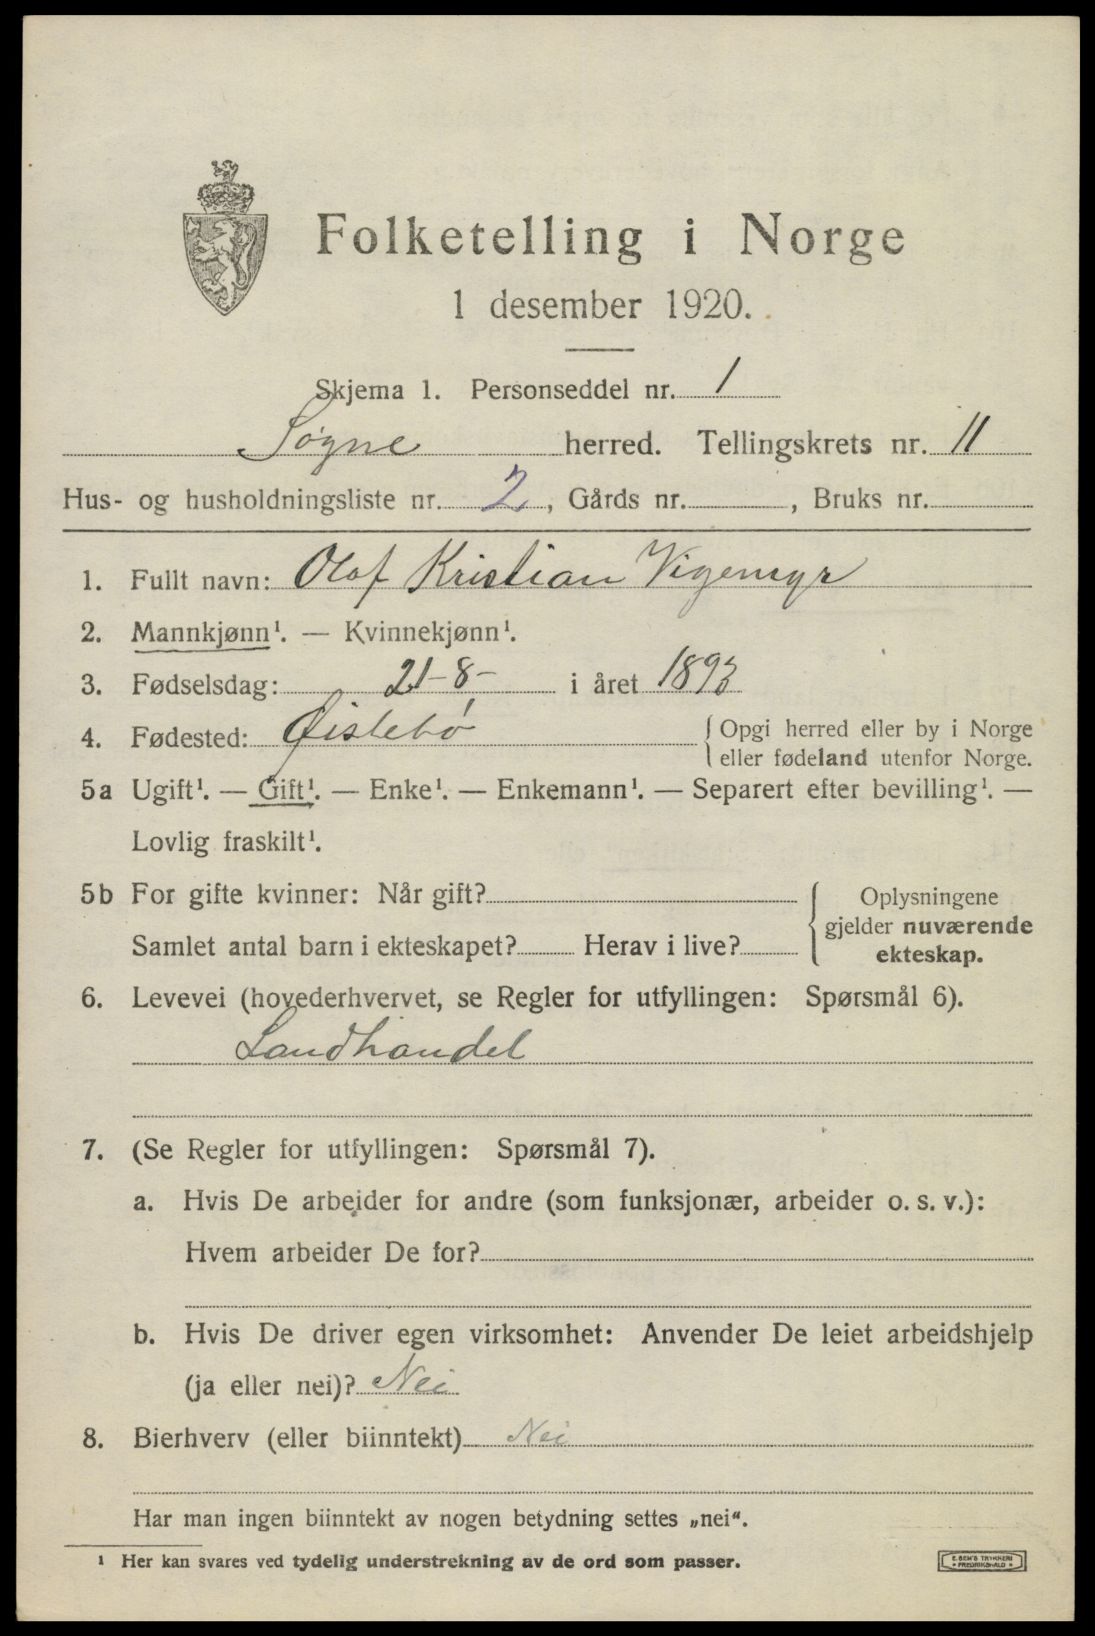 Folketelling i Norge
1 desember 1920.
Skjema 1. Personseddel nr. 1
Søgne herred. Tellingskrets nr. 11
Hus- og husholdningsliste nr. 2, Gårds nr. , Bruks nr.
1. Fullt navn: Olaf Kristian Vigemyr
2. Mannkjønn¹. — Kvinnekjønn¹.
3. Fødselsdag: 21-8- i året 1893
4. Fødested: Øislebø { Opgi herred eller by i Norge
eller fødeland utenfor Norge.
5a Ugift¹. — Gift¹. — Enke¹. — Enkemann¹. — Separert efter bevilling¹. —
Lovlig fraskilt¹.
5b For gifte kvinner: Når gift?
Samlet antal barn i ekteskapet? Herav i live?
{ Oplysningene
gjelder nuværende
ekteskap.
6. Levevei (hovederhvervet, se Regler for utfyllingen: Spørsmål 6).
Landhandel
7. (Se Regler for utfyllingen: Spørsmål 7).
a. Hvis De arbeider for andre (som funksjonær, arbeider o. s. v.):
Hvem arbeider De for?
b. Hvis De driver egen virksomhet: Anvender De leiet arbeidshjelp
(ja eller nei)? Nei
8. Bierhverv (eller biinntekt) Nei
Har man ingen biinntekt av nogen betydning settes „nei“.
¹ Her kan svares ved tydelig understrekning av de ord som passer.
E. SEM'S TRYKKERI
* FREDRIKSHALD *